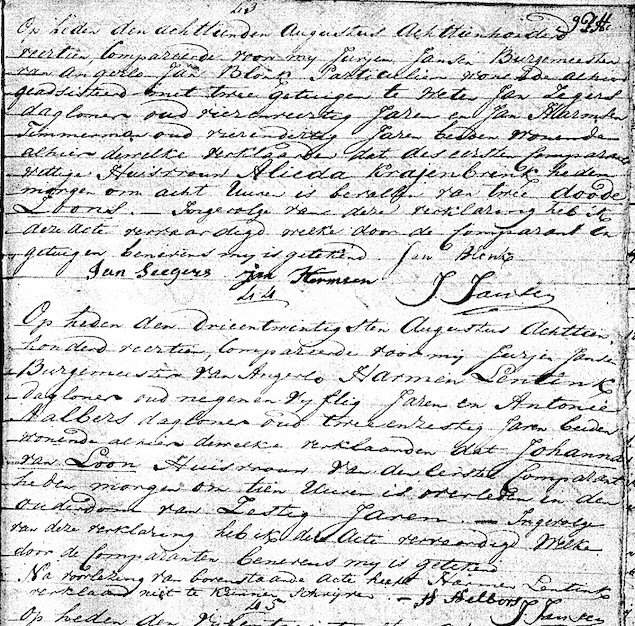 43
Op heden den achttienden Augustus Achttienhonderd
veertien, Compareerde voor my Jurjen Jansen Burgemeester
van Angerlo Jan Blenk Particulier wonende alhier
geadsisteerd met twee getuigen te weten Jan Zegers
dagloner oud vierenveertig Jaren en Jan Harmsen
Timmerman oud vierendertig Jaren beiden wonende
alhier dewelke verklaarden dat des eersten Comparants
wettige Huisvrouw Alieda Krasenbrink heden
morgen om acht Uuren is bevallen van twee doode
Zoons. — Ingevolge van deze verklaring heb ik
deze Acte vervaardigd welke door de Comparant en
getuigen benevens my is getekend Jan Blenk
Jan Seegers Jan Hermsen
44 J Jansen
Op heden den drieentwintigsten Augustus Achttien
honderd veertien, Compareerde voor my Jurjen Jansen
Burgemeester van Angerlo Harmen Lentink
daglooner oud negenenvyftig Jaren en Antonie
Halbers dagloner oud drieenzestig Jaren beiden
wonende alhier dewelke verklaarden dat Johanna
van Loon Huisvrouw van den Eersten Comparant
heden morgen om tien Uuren is overleden in den
ouderdom van Zestig Jaren — Ingevolge
van deze verklaring heb ik deze Acte vervaardigd welke
door de Comparanten benevens my is getekend
Na voorlezing van bovenstaande acte heeft Harmen Lentink
verklaard niet te kunnen schrijven — H Helbers J Jansen
45
Op heden den